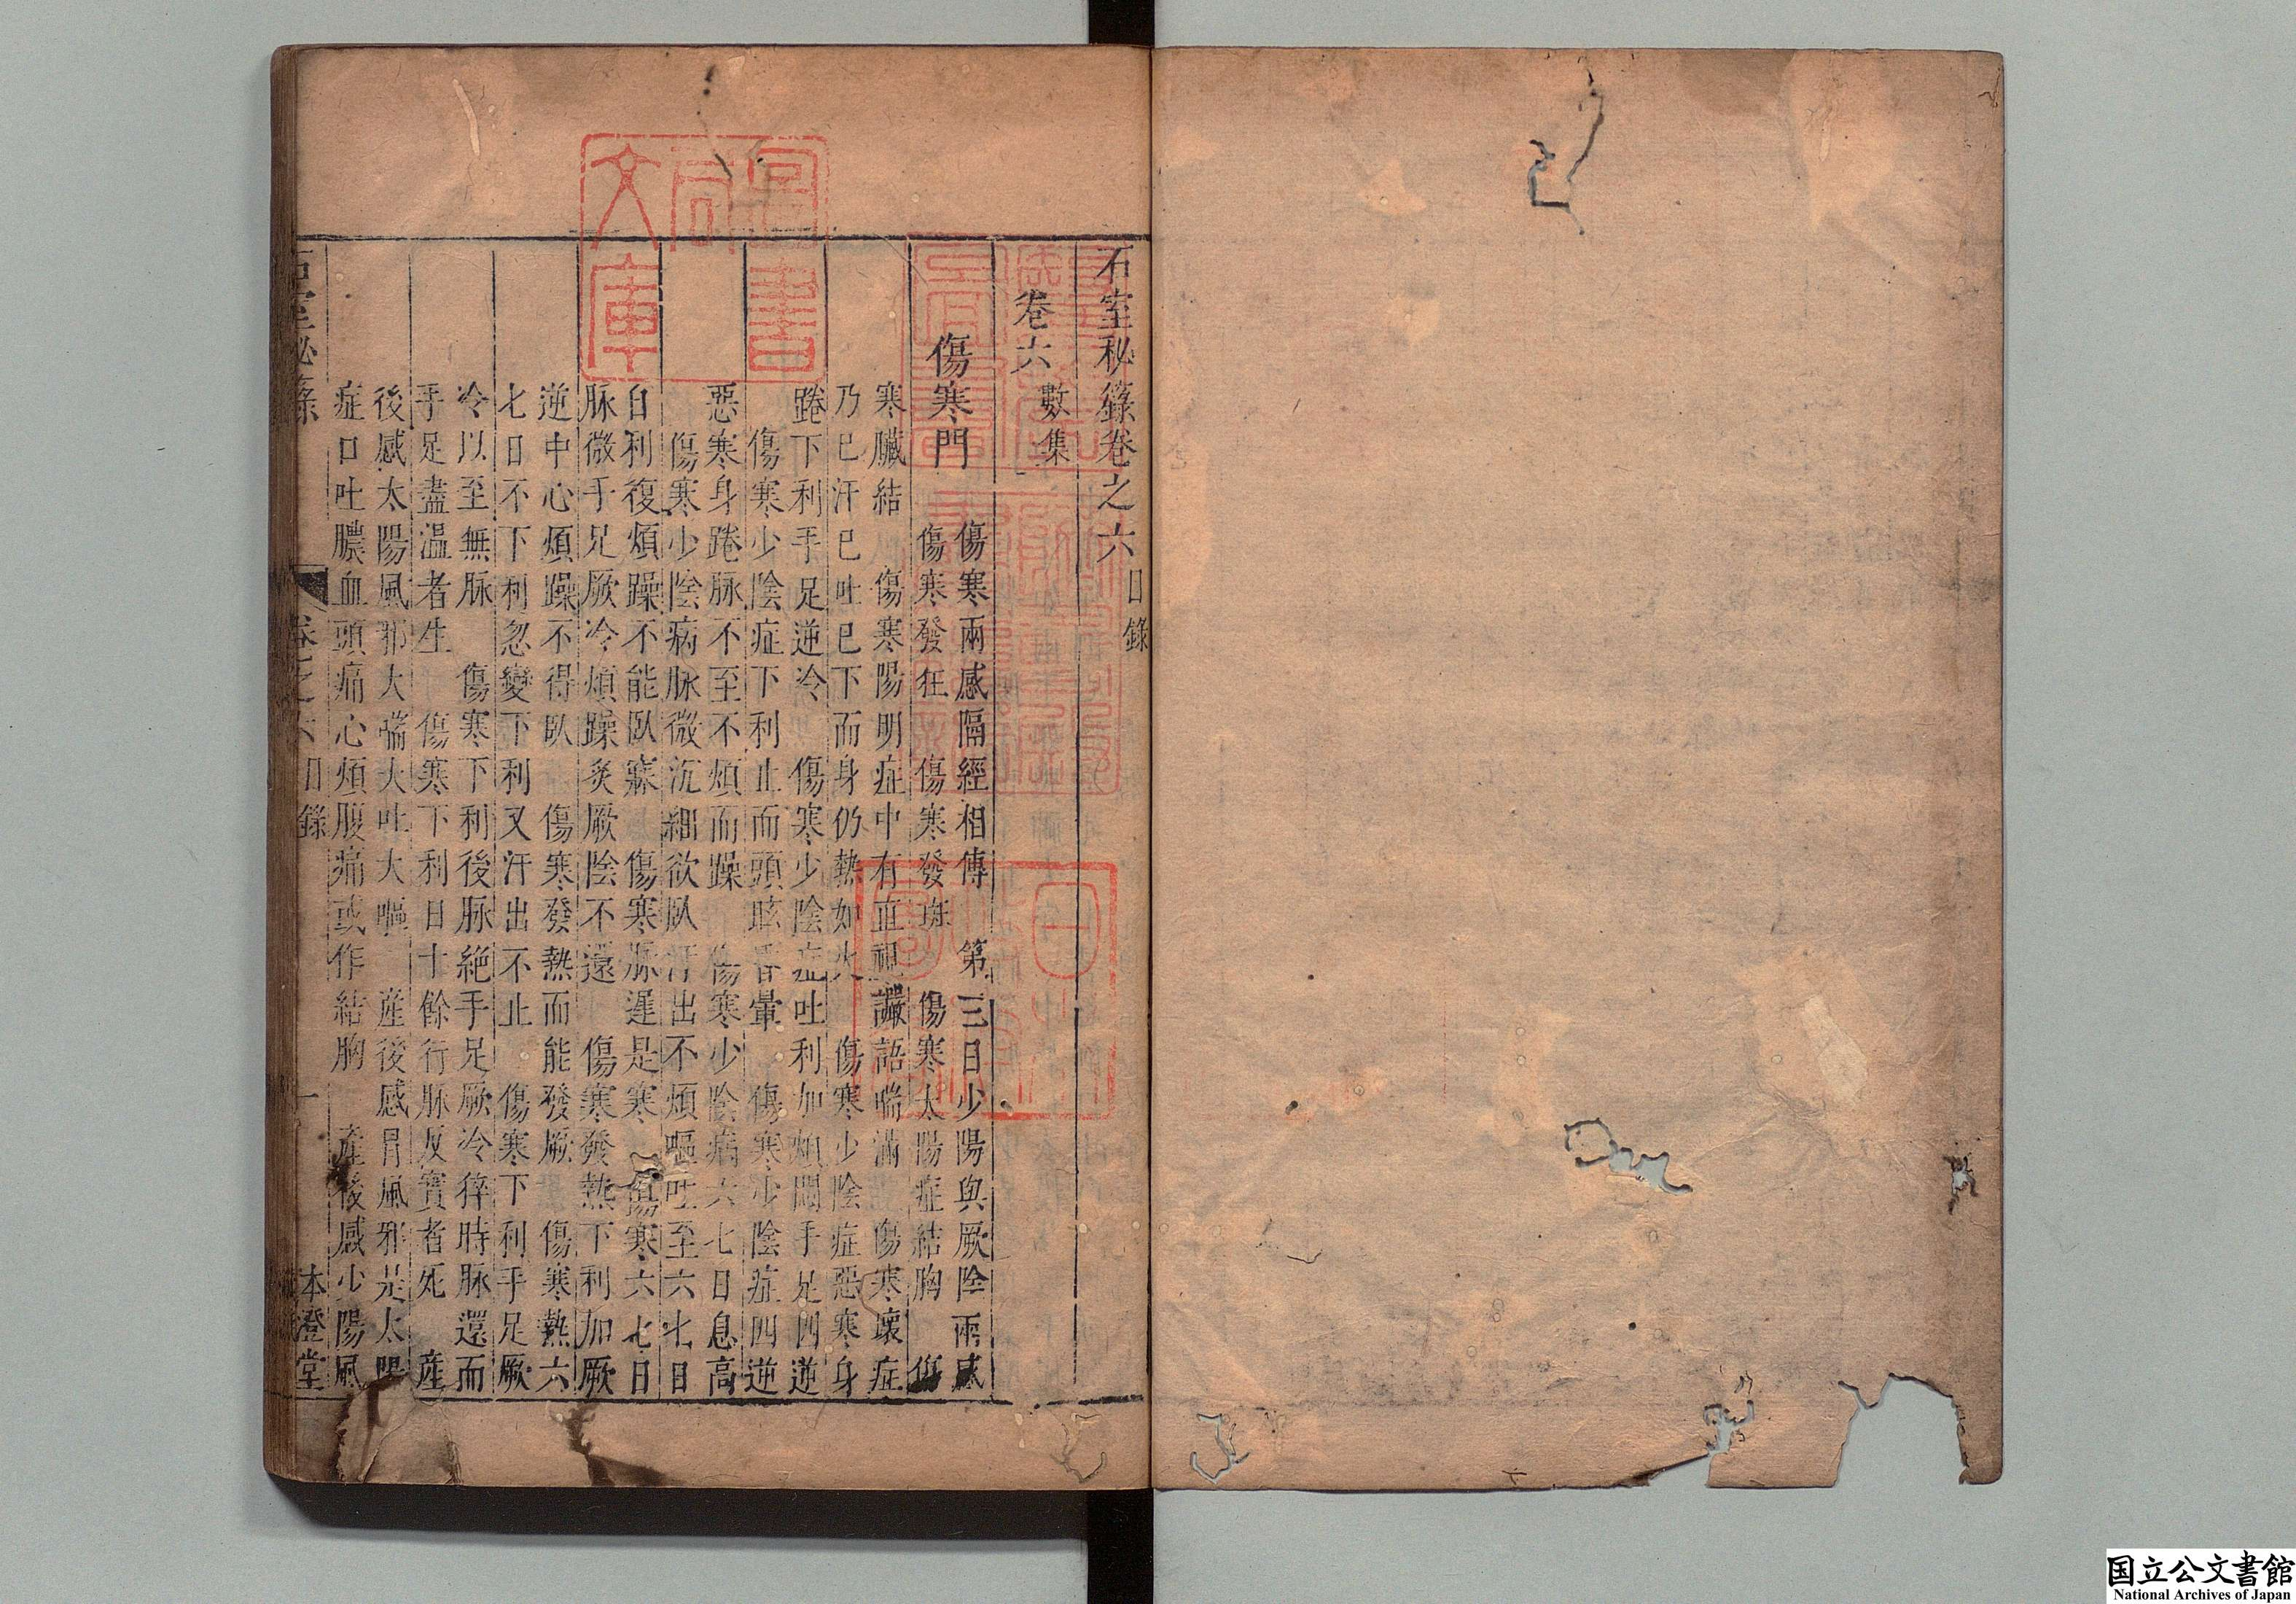 石室秘籙卷之六目錄
卷六 數集
傷寒門
傷寒兩感隔經相傳 第三日少陽與厥陰兩感
傷寒發狂 傷寒發斑 傷寒太陽症結胸 傷
寒臟結 傷寒陽明症中有直視讝語喘滿 傷寒壞症
乃已汗已吐已下而身仍熱如火 傷寒少陰症惡寒身
踡下利手足逆冷 傷寒少陰症吐利加煩悶手足四逆
傷寒少陰症下利止而頭眩昏暈 傷寒少陰症四逆
惡寒身踡脉不至不煩而躁 傷寒少陰病六七日息高
傷寒少陰病脉微沉細欲臥汗出不煩嘔吐至六七日
自利復煩躁不能臥寐 傷寒脉遲是寒 傷寒六七日
脉微手足厥冷煩躁炙厥陰不還 傷寒發熱下利加厥
逆中心煩躁不得臥 傷寒發熱而能發厥 傷寒熱六
七日不下利忽變下利又汗出不止 傷寒下利手足厥
冷以至無脉 傷寒下利後脉絶手足厥冷猝時脉還而
手足盡溫者生 傷寒下利日十餘行脉反實者死 産
後感太陽風邪大喘大吐大嘔 産後感冒風邪是太陽
症口吐膿血頭痛心煩腹痛或作結胸 産後感少陽風
石室秘籙 卷之六目錄 一 本澄堂
文庫
書
日
国立公文書館
National Archives of Japan